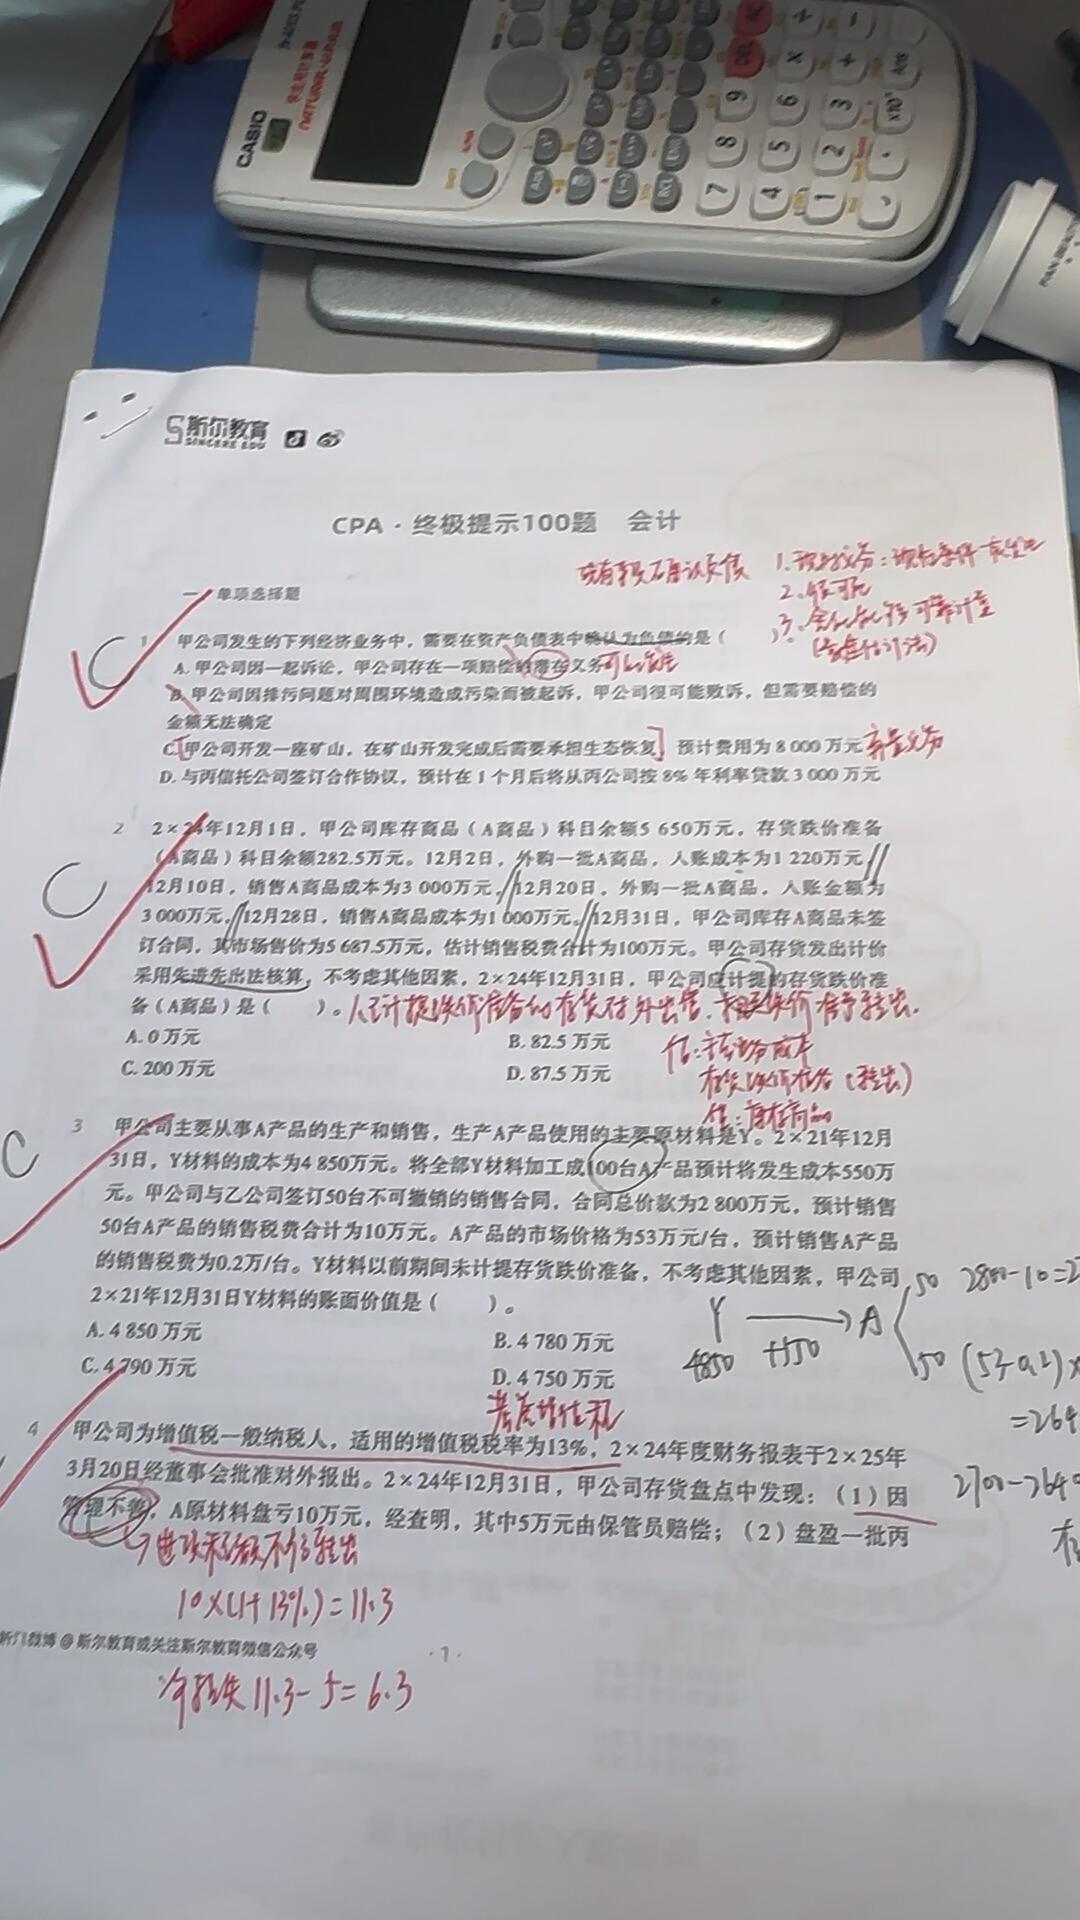 CASIO
NATURAL-V.P.A.M.
DEL
AC
7
8
9
4
5
6
×
÷
1
2
3
+
−
·
×10ˣ
Ans
斯尔教育
SINCERE EDU
CPA · 终极提示100题 会计
或有事项不确认负债
1. 现时义务：现在条件
2. 很可能
3. 可靠计量
一 单项选择题
1 甲公司发生的下列经济业务中，需要在资产负债表中确认为负债的是（ ）。
A. 甲公司因一起诉讼，甲公司存在一项赔偿的潜在义务
B. 甲公司因排污问题对周围环境造成污染而被起诉，甲公司很可能败诉，但需要赔偿的
金额无法确定
C. 甲公司开发一座矿山，在矿山开发完成后需要承担生态恢复，预计费用为8 000万元 弃置义务
D. 与丙信托公司签订合作协议，预计在1个月后将从丙公司按8%年利率贷款3 000万元
C
2 2×24年12月1日，甲公司库存商品（A商品）科目余额5 650万元，存货跌价准备
（A商品）科目余额282.5万元。12月2日，外购一批A商品，入账成本为1 220万元
12月10日，销售A商品成本为3 000万元，12月20日，外购一批A商品，入账金额为
C
3 000万元，12月28日，销售A商品成本为1 000万元。12月31日，甲公司库存A商品未签
订合同，其市场售价为5 687.5万元，估计销售税费合计为100万元。甲公司存货发出计价
采用先进先出法核算，不考虑其他因素，2×24年12月31日，甲公司应计提的存货跌价准
备（A商品）是（ ）。
已计提跌价准备的存货对外出售，相应跌价准予转出.
A. 0万元
B. 82.5 万元
C. 200 万元
D. 87.5 万元
借：主营业务成本
存货跌价准备（转出）
贷：库存商品
3 甲公司主要从事A产品的生产和销售，生产A产品使用的主要原材料是Y。2×21年12月
C
31日，Y材料的成本为4 850万元。将全部Y材料加工成100台A产品预计将发生成本550万
元。甲公司与乙公司签订50台不可撤销的销售合同，合同总价款为2 800万元，预计销售
50台A产品的销售税费合计为10万元。A产品的市场价格为53万元/台，预计销售A产品
的销售税费为0.2万/台。Y材料以前期间未计提存货跌价准备，不考虑其他因素，甲公司
2×21年12月31日Y材料的账面价值是（ ）。
A. 4 850 万元
B. 4 780 万元
C. 4 790 万元
D. 4 750 万元
50 2800-10=2
Y → A
4850 +550
50 (53-0.2)×
=264
2700-2640
4 甲公司为增值税一般纳税人，适用的增值税税率为13%，2×24年度财务报表于2×25年
3月20日经董事会批准对外报出。2×24年12月31日，甲公司存货盘点中发现：（1）因
管理不善，A原材料盘亏10万元，经查明，其中5万元由保管员赔偿；（2）盘盈一批丙
→进项税额不得转出
10×(1+13%)=11.3
微博@斯尔教育或关注斯尔教育微信公众号
·1·
净损失11.3-5=6.3